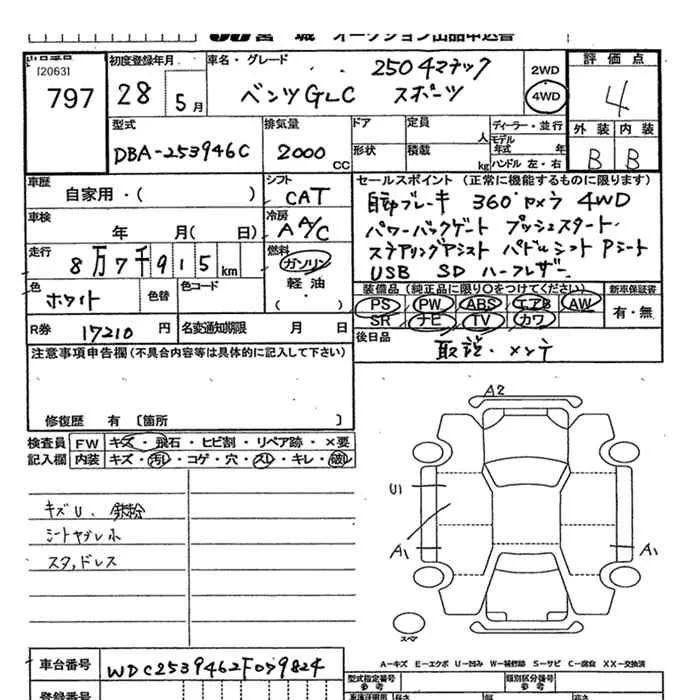 宮 城 オークション出品申込書
出品番号
[2063]
797
初度登録年月
28 5月
車名・グレード
250 4マチック
ベンツGLC スポーツ
2WD
4WD
評価点
4
外装 内装
B B
型式
DBA-253946C
排気量
2000 CC
ドア
形状
定員 人
積載 kg
ディーラー・並行
モデル年式 年
ハンドル 左・右
車歴
自家用・( )
シフト
CAT
車検
年 月( 日)
冷房
AA/C
走行
8万7千915km
燃料
ガソリン
軽油・
( )
色
ホワイト
色替
色コード
R券 17210円
名変通知期限 月 日
セールスポイント (正常に機能するものに限ります)
自動ブレーキ 360°カメラ 4WD
パワーバックゲート プッシュスタート
ステアリングアシスト パドルシフト Pシート
USB SD ハーフレザー
装備品(純正品に限り○をつけてください)
PS PW ABS エアB AW
SR ナビ TV カワ
新車保証書
有・無
後日品
取説・メンテ
注意事項申告欄(不具合内容等は具体的に記入して下さい)
修復歴 有 [箇所 ]
検査員 FW キズ・飛石・ヒビ割・リペア跡・×要
記入欄 内装 キズ・汚レ・コゲ・穴・スレ・キレ・破レ
キズU、鉄粉
シートヤブレ小
スタッドレス
A2
U1
A1
A1
スペア
A-キズ E-エクボ U-凹み W-補修跡 S-サビ C-腐食 XX-交換済
車台番号 WDC2539462F079824
登録番号
型式指定番号
参考
類別区分番号
参考
長さ
幅
高さ